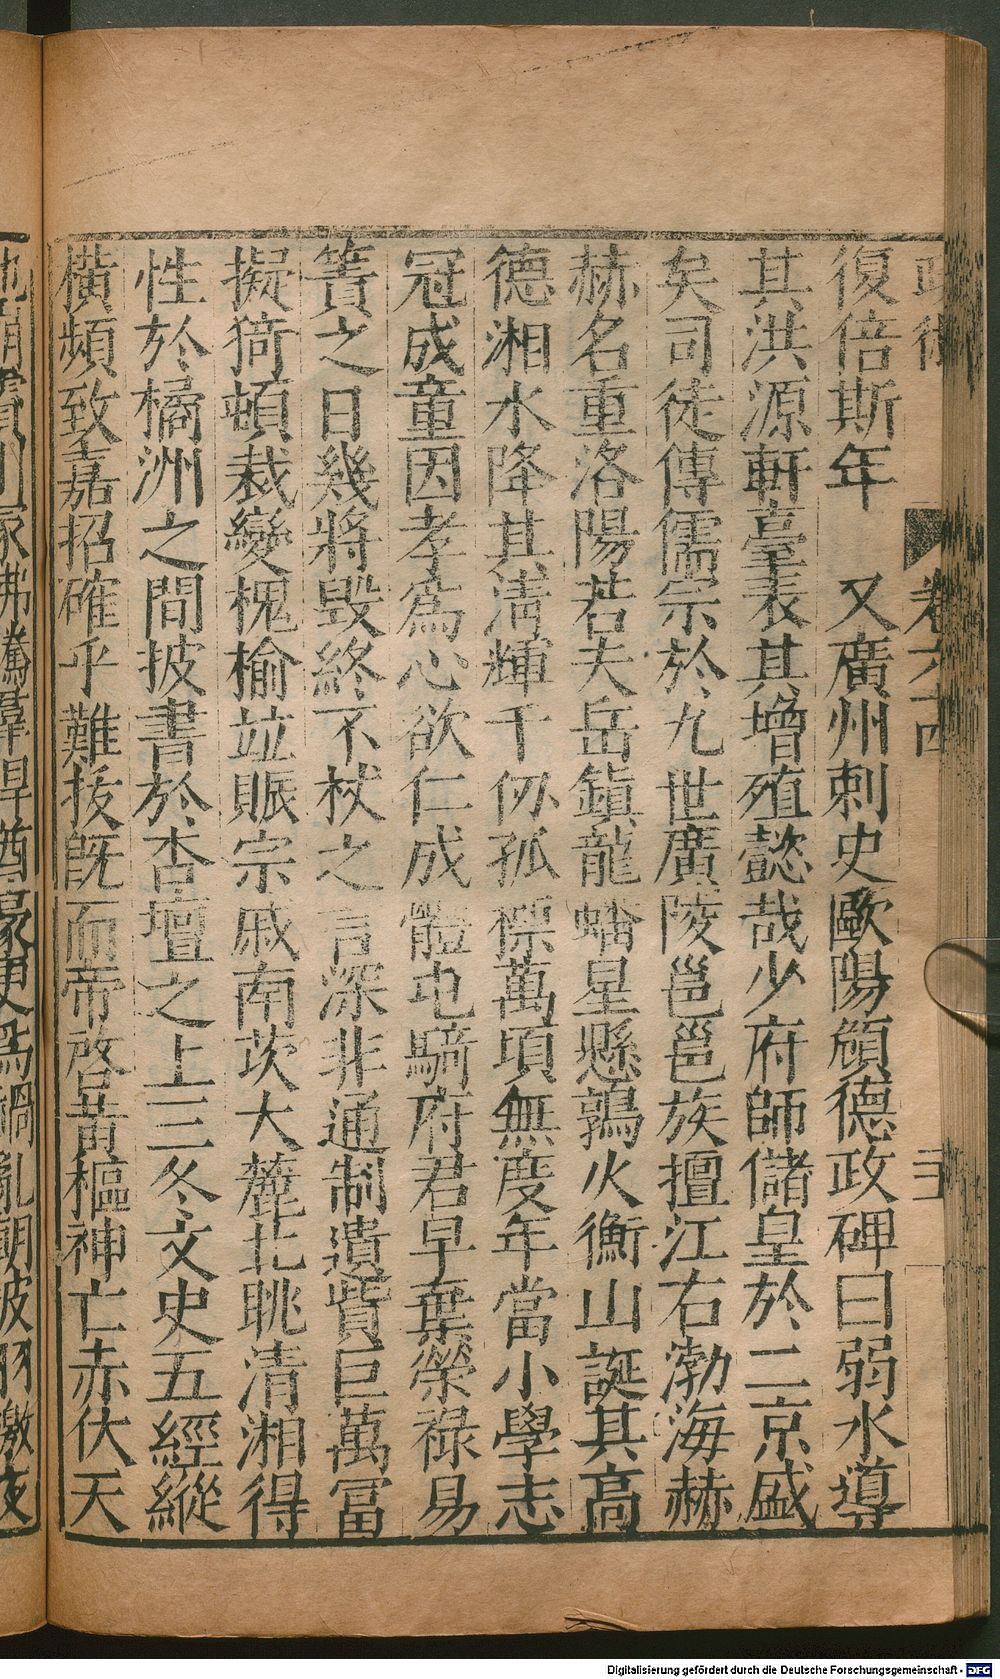 復倍斯年　又廣州刺史歐陽頠德政碑曰弱水導
其洪源軒臺表其增殖懿哉少府師儲皇於二京盛
矣司徒傳儒宗於九世廣陵邕邕族擅江右渤海赫
赫名重洛陽若夫岳鎮龍蟠星懸鶉火衡山誕其高
德湘水降其清輝千仞孤標萬頃無度年當小學志
冠成童因孝爲心欲仁成體屯騎府君早棄榮祿易
簀之日幾將毀終不杖之言深非通制遺貲巨萬富
擬猗頓裁變槐榆竝賑宗戚南茨大麓北眺清湘得
性於橘洲之間披書於杏壇之上三冬文史五經縱
橫頻致嘉招確乎難拔旣而帝啓黃樞神亡赤伏天
卷六十四
Digitalisierung gefördert durch die Deutsche Forschungsgemeinschaft - DFG